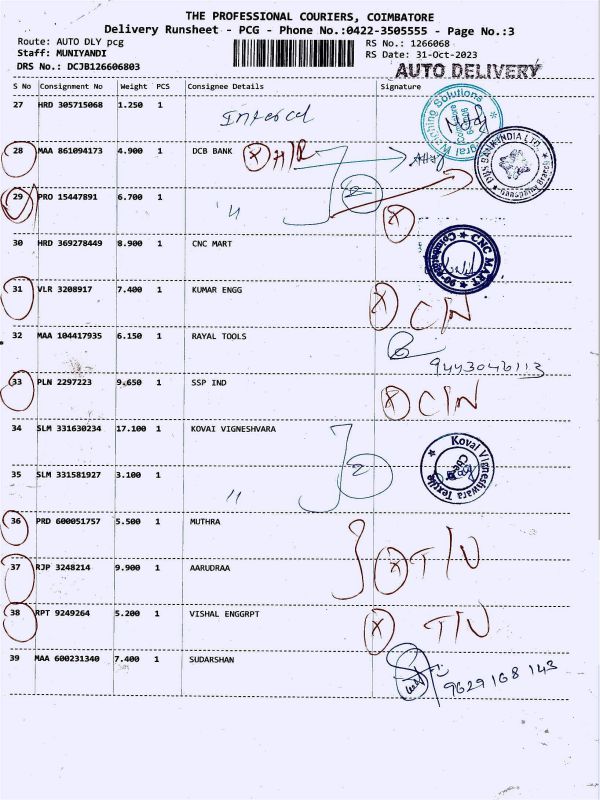 THE PROFESSIONAL COURIERS, COIMBATORE
Delivery Runsheet - PCG - Phone No.:0422-3505555 - Page No.:3
Route: AUTO DLY pcg RS No.: 1266068
Staff: MUNIYANDI RS Date: 31-Oct-2023
DRS No.: DCJB126606803 AUTO DELIVERY
S No Consignment No Weight PCS Consignee Details Signature
27 HRD 305715068 1.250 1
28 MAA 861094173 4.900 1 DCB BANK
29 PRO 15447891 6.700 1 "
30 HRD 369278449 8.900 1 CNC MART CNC MART
31 VLR 3208917 7.400 1 KUMAR ENGG X C/N
32 MAA 104417935 6.150 1 RAYAL TOOLS
9443046113
33 PLN 2297223 9.650 1 SSP IND X C/N
34 SLM 331630234 17.100 1 KOVAI VIGNESHVARA 2 Kovai Vigneshwara Textile
35 SLM 331581927 3.100 1 "
36 PRD 600051757 5.500 1 MUTHRA
37 RJP 3248214 9.900 1 AARUDRAA X T/N
38 RPT 9249264 5.200 1 VISHAL ENGGRPT X T/N
39 MAA 600231340 7.400 1 SUDARSHAN 9629168143